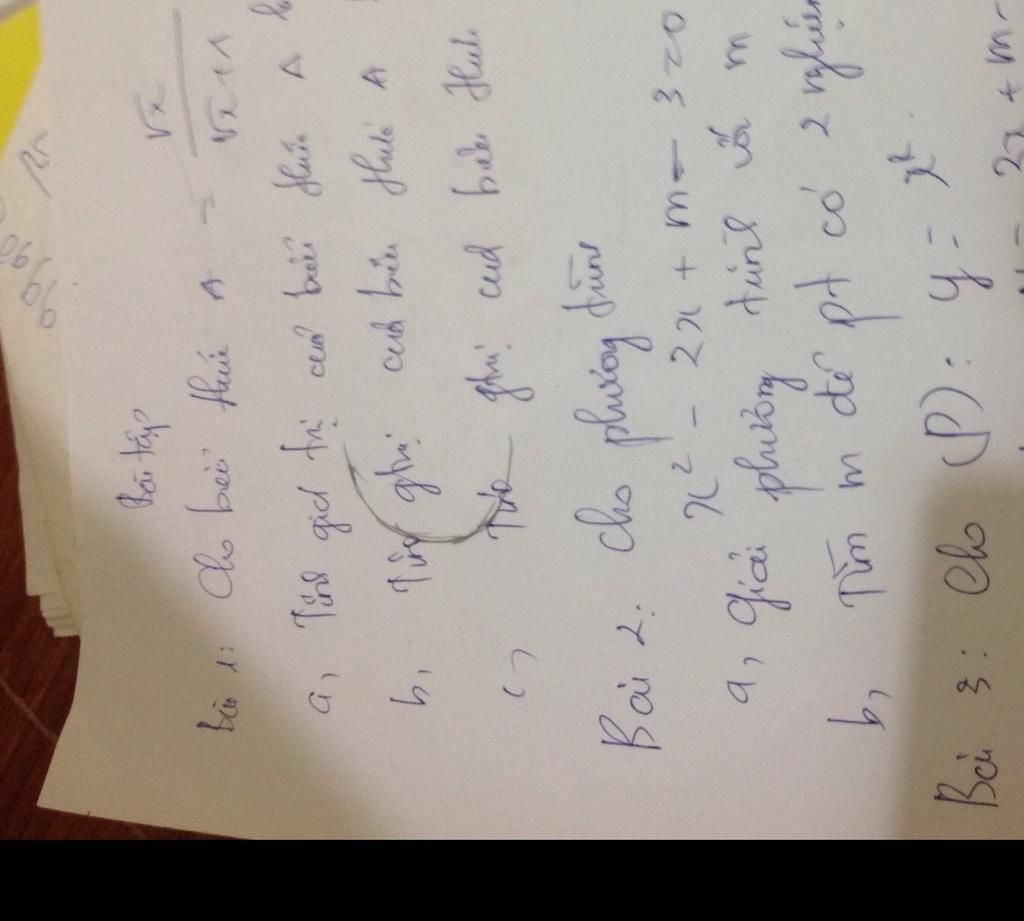 Bài tập
Bài 1: Cho biểu thức A = √x / √x + 1
a, Tính giá trị của biểu thức A
b, Tìm gtrị của biểu thức A
c, gtrị của biểu thức
Bài 2: Cho phương trình
x² - 2x + m - 3 = 0
a, Giải phương trình với m
b, Tìm m để pt có 2 nghiệm
Bài 3: Cho (P): y = x².
2x + m -